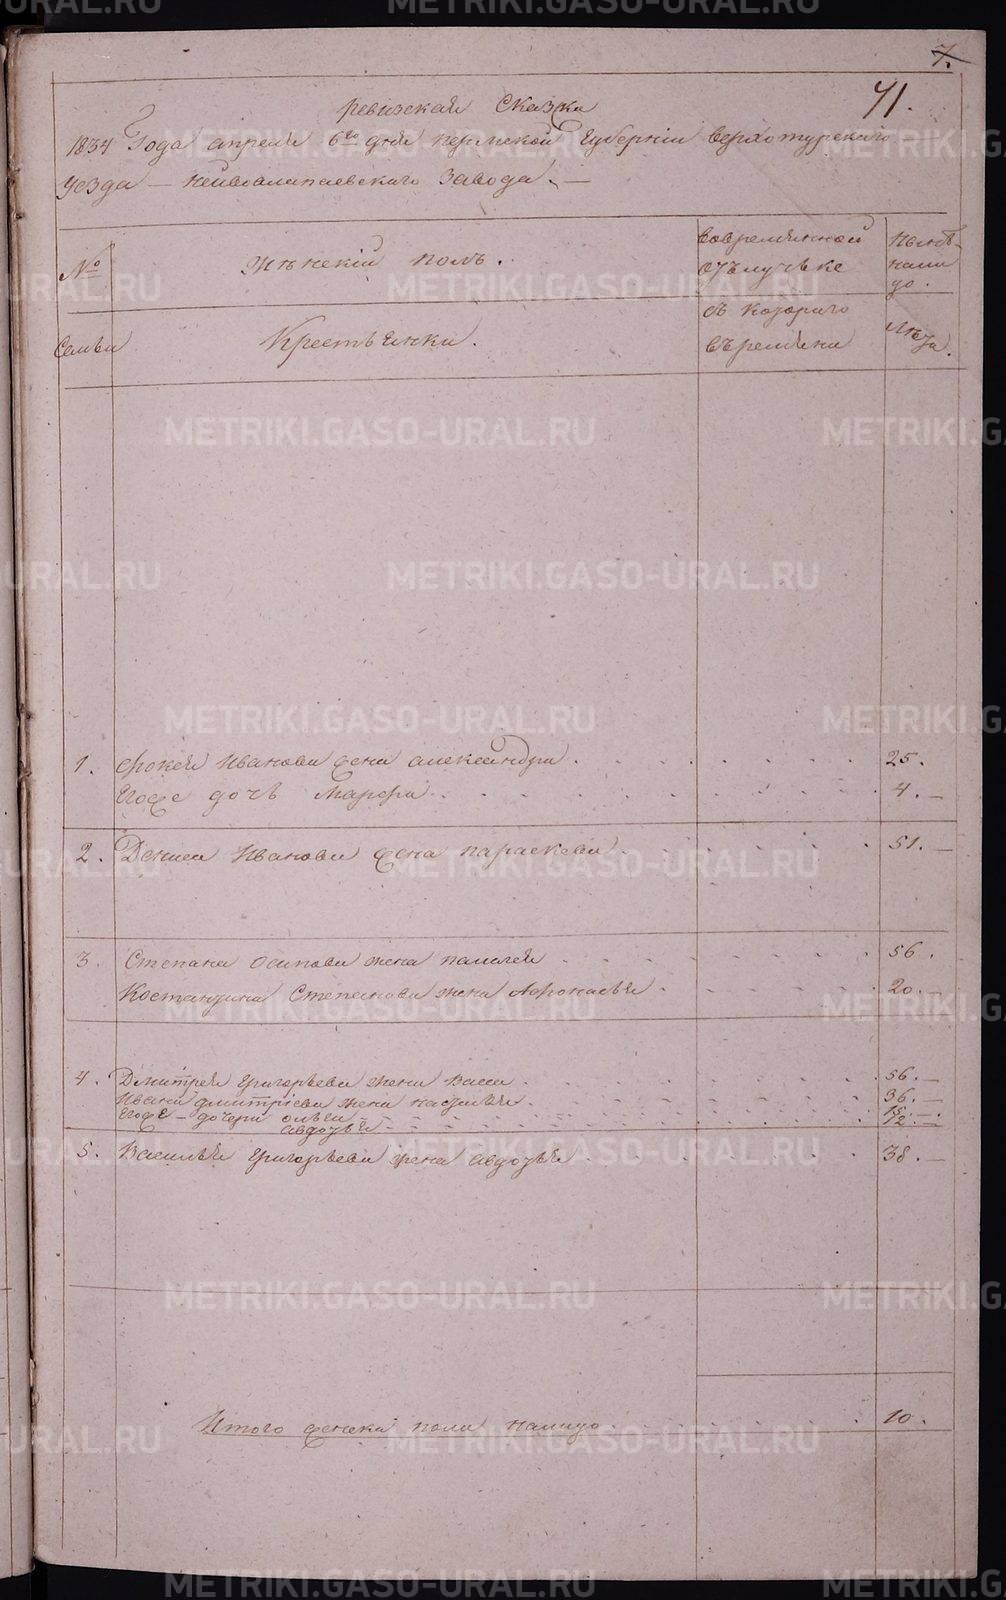 7.
71.
ревизская Сказка
1834 Года апреля 6го дня пермской Губернiи верхотурского
уезда — нейвоалапаевского завода. —
№
женскiй полъ.
вовременной
отълучьке
ныне
нали
цо.
Семьи
Крестьянки.
съ которого
въремяни
лета.
1. фокея Иванова жена александра . 25.
Егоже дочь марфа . 4. —
2. Дениса Иванова жена параскева . 51. —
3. Степана осипова жена палагея . 56.
Костянтина Степанова жена Афонасья . 20. —
4. Дмитрея григорьева жена васса . 56. —
Ивана дмитрiева жена настасья . 36. —
Егоже — дочери ольга — 15. —
авдотья — 12. —
5. Василья григорьева жена авдотья . 38. —
Итого женска пола налицо . 10.
METRIKI.GASO-URAL.RU